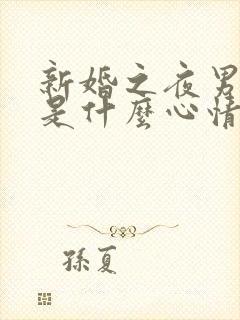 新婚之夜男
是什麼心情
孫夏